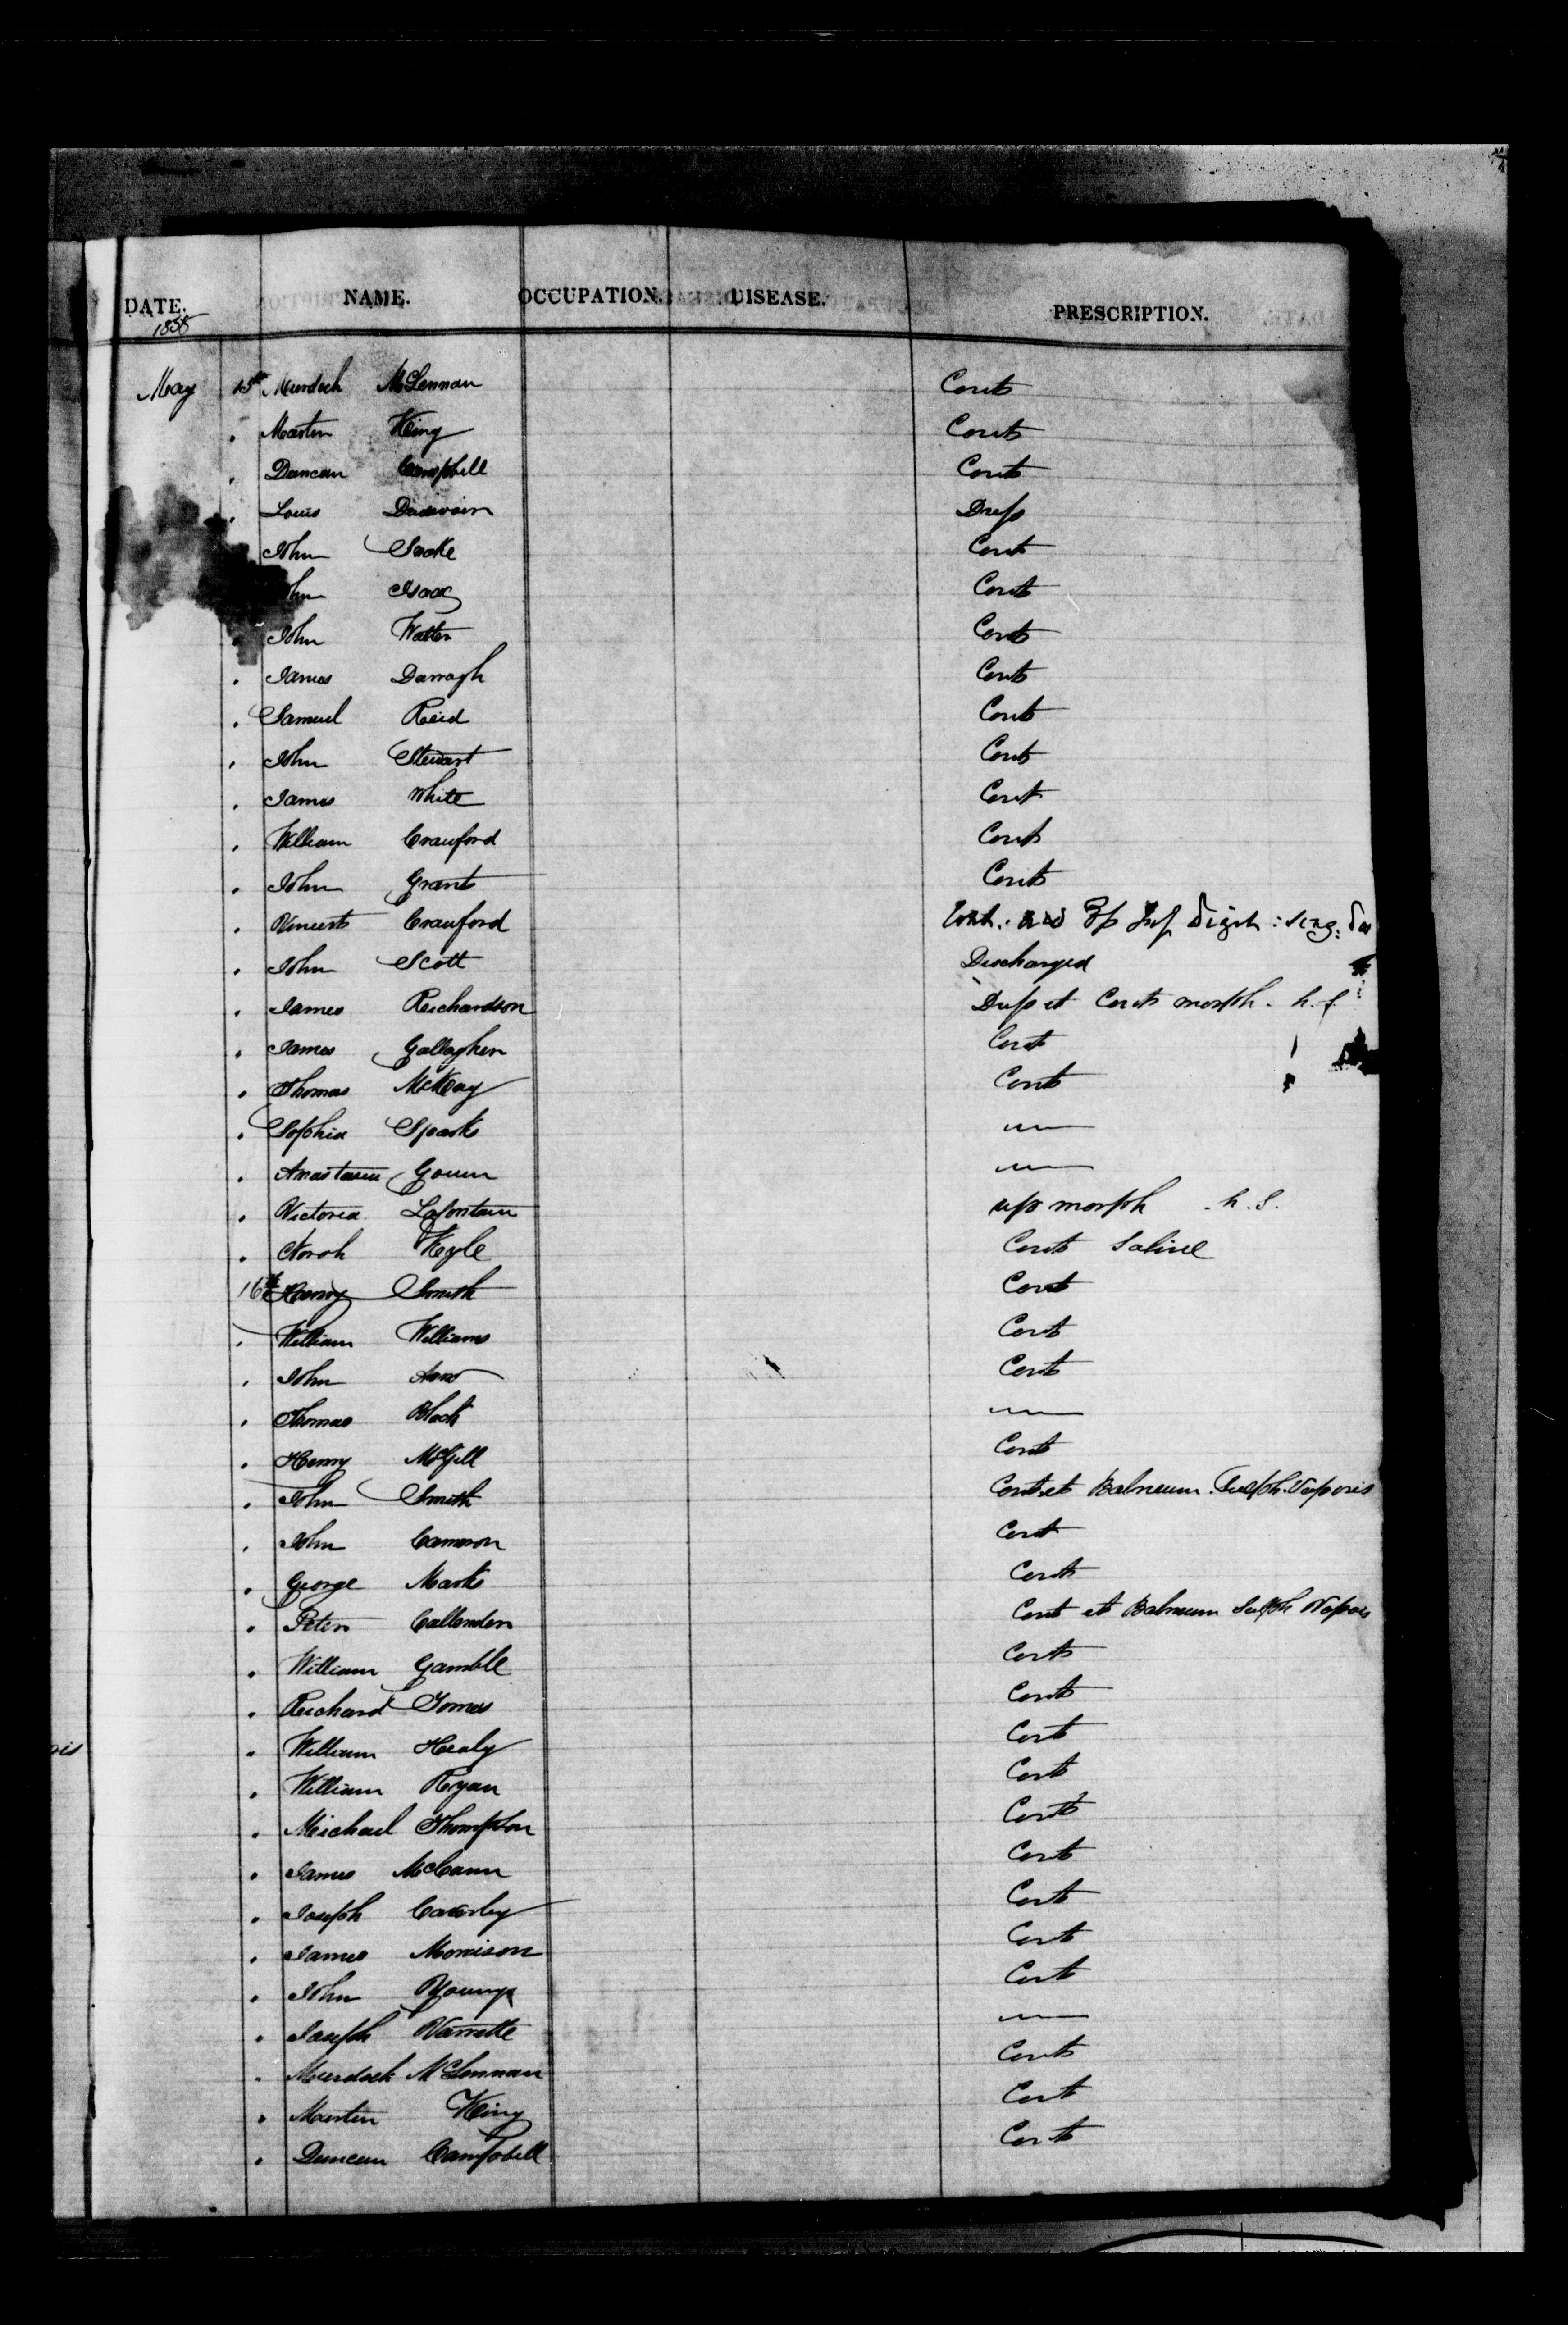 DATE. NAME. OCCUPATION. DISEASE. PRESCRIPTION.
1858
May 15th Murdoch McLennan Cont
" Martin King Cont
" Duncan Campbell Cont
" Louis Dress
John Snoke Cont
John Isaac Cont
" John Watter Cont
" James Darragh Cont
" Samuel Reid Cont
" John Stewart Cont
" James White Cont
" William Crauford Cont
" John Grant Cont
" Vincent Crauford Cont. Inf Digit:
" John Scott Discharged
" James Richardson Dress et Cont morph. h. s.
" James Gallagher Cont
" Thomas McKay Cont
" Sophia Sparks "
" Anastasia "
" Victoria Lafontain rep morph - h. S.
" Norah Kyle Cont Saline
16th Henry Smith Cont
" William Williams Cont
" John Cont
" Thomas Black "
" Henry McGill Cont
" John Smith Cont et Balneum Sulph. Vaporis
" John Cameron Cont
" George Marks Cont
" Peter Callender Cont et Balneum Sulph Vapois
" William Gamble Cont
" Richard Jones Cont
" William Healy Cont
" William Ryan Cont
" Michael Thompson Cont
" James McCann Cont
" Joseph Caverley Cont
" James Morrison Cont
" John Young Cont
" Joseph Varrette "
" Murdoch McLennan Cont
" Martin King Cont
" Duncan Campbell Cont